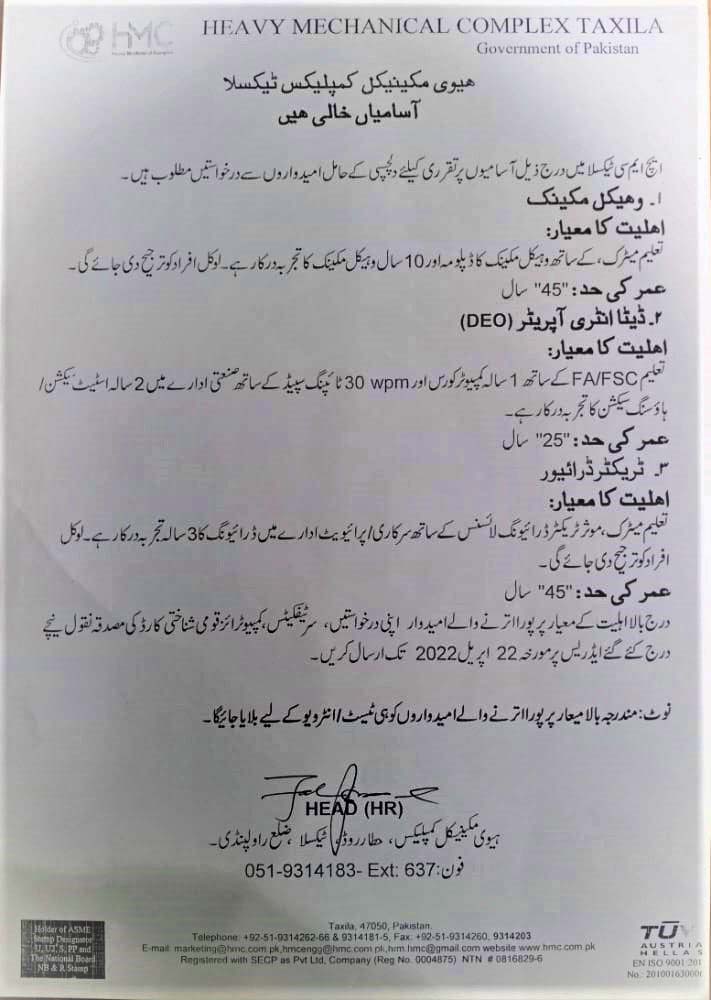 HMC
HEAVY MECHANICAL COMPLEX TAXILA
Government of Pakistan
ھیوی مکینیکل کمپلیکس ٹیکسلا
آسامیاں خالی ھیں
ایچ ایم سی ٹیکسلا میں درج ذیل آسامیوں پر تقرری کیلئے دلچسپی کے حامل امیدواروں سے درخواستیں مطلوب ہیں۔
۱۔ وھیکل مکینک
اھلیت کا معیار:
تعلیم میٹرک، کے ساتھ وہیکل مکینک کا ڈپلومہ اور 10 سال وہیکل مکینک کا تجربہ درکار ہے۔ لوکل افراد کو ترجیح دی جائے گی۔
عمر کی حد: "45" سال
۲۔ ڈیٹا انٹری آپریٹر (DEO)
اھلیت کا معیار:
تعلیم FA/FSC کے ساتھ 1 سالہ کمپیوٹر کورس اور 30 wpm ٹائپنگ سپیڈ کے ساتھ صنعتی ادارے میں 2 سالہ اسٹیٹ سیکشن/
ہاؤسنگ سیکشن کا تجربہ درکار ہے۔
عمر کی حد: "25" سال
۳۔ ٹریکٹر ڈرائیور
اھلیت کا معیار:
تعلیم میٹرک، موثر ٹریکٹر ڈرائیونگ لائسنس کے ساتھ سرکاری/ پرائیویٹ ادارے میں ڈرائیونگ کا 3 سالہ تجربہ درکار ہے۔ لوکل
افراد کو ترجیح دی جائے گی۔
عمر کی حد: "45" سال
درج بالا اہلیت کے معیار پر پورا اترنے والے امیدوار اپنی درخواستیں، سرٹیفکیٹس، کمپیوٹرائز قومی شناختی کارڈ کی مصدقہ نقول نیچے
درج کئے گئے ایڈریس پر مورخہ 22 اپریل 2022 تک ارسال کریں۔
نوٹ: مندرجہ بالا میعار پر پورا اترنے والے امیدواروں کو ہی ٹیسٹ/انٹرویو کے لیے بلایا جائیگا۔
HEAD (HR)
ہیوی مکینیکل کمپلیکس، حطار روڈ، ٹیکسلا ،ضلع راولپنڈی۔
فون: 051-9314183- Ext: 637
Taxila, 47050, Pakistan.
Telephone: +92-51-9314262-66 & 9314181-5, Fax: +92-51-9314260, 9314203
E-mail: marketing@hmc.com.pk,hmcengg@hmc.com.pk,hrm.hmc@gmail.com website www.hmc.com.pk
Registered with SECP as Pvt Ltd, Company (Reg No. 0004875) NTN # 0816829-6
Holder of ASME
Stamp Designator
U, U2, S, PP and
The National Board
NB & R Stamp
TÜV
AUSTRIA
HELLAS
EN ISO 9001:201
No.: 2010016300